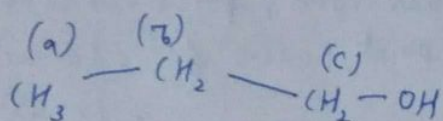 (a) (b) (c)
CH₃ — CH₂ — CH₂ — OH